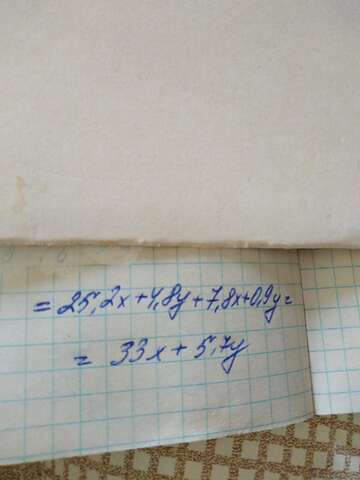 = 25,2x+4,8y+7,8x+0,9y=
= 33x+5,7y